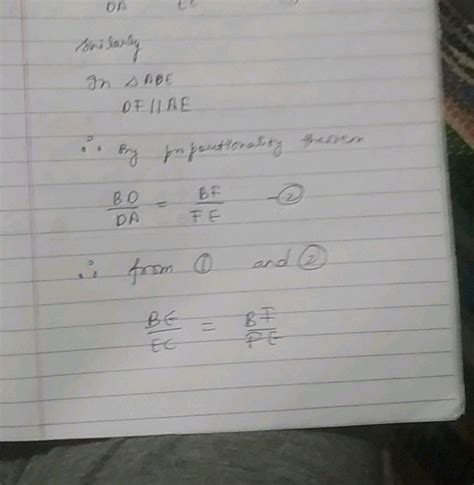 DA EC
Similarly
In △ABE
DF || AE
∴ By proportionality theorem
BD/DA = BF/FE - ②
∴ from ① and ②
BE/EC = BF/FE